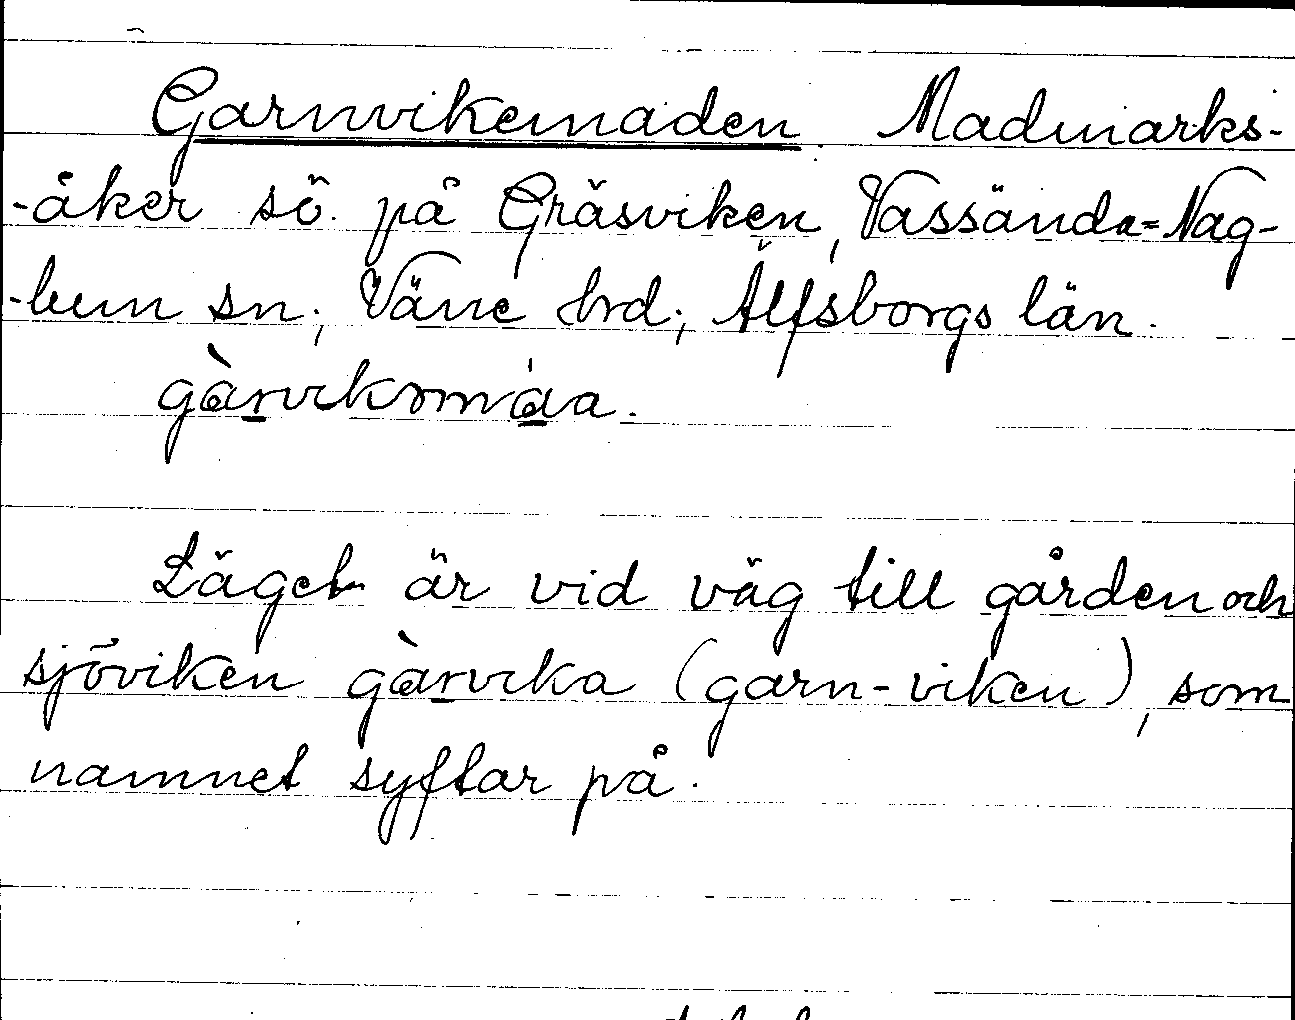 Garnvikemaden. Madmarks-
-åker sö. på Gräsviken, Vassända=Nag-
-lum sn., Väne hrd., Älfsborgs län.
gàrvikəmáa.
Läget är vid väg till gården och
sjöviken gàrvika (garn-viken), som
namnet syftar på.